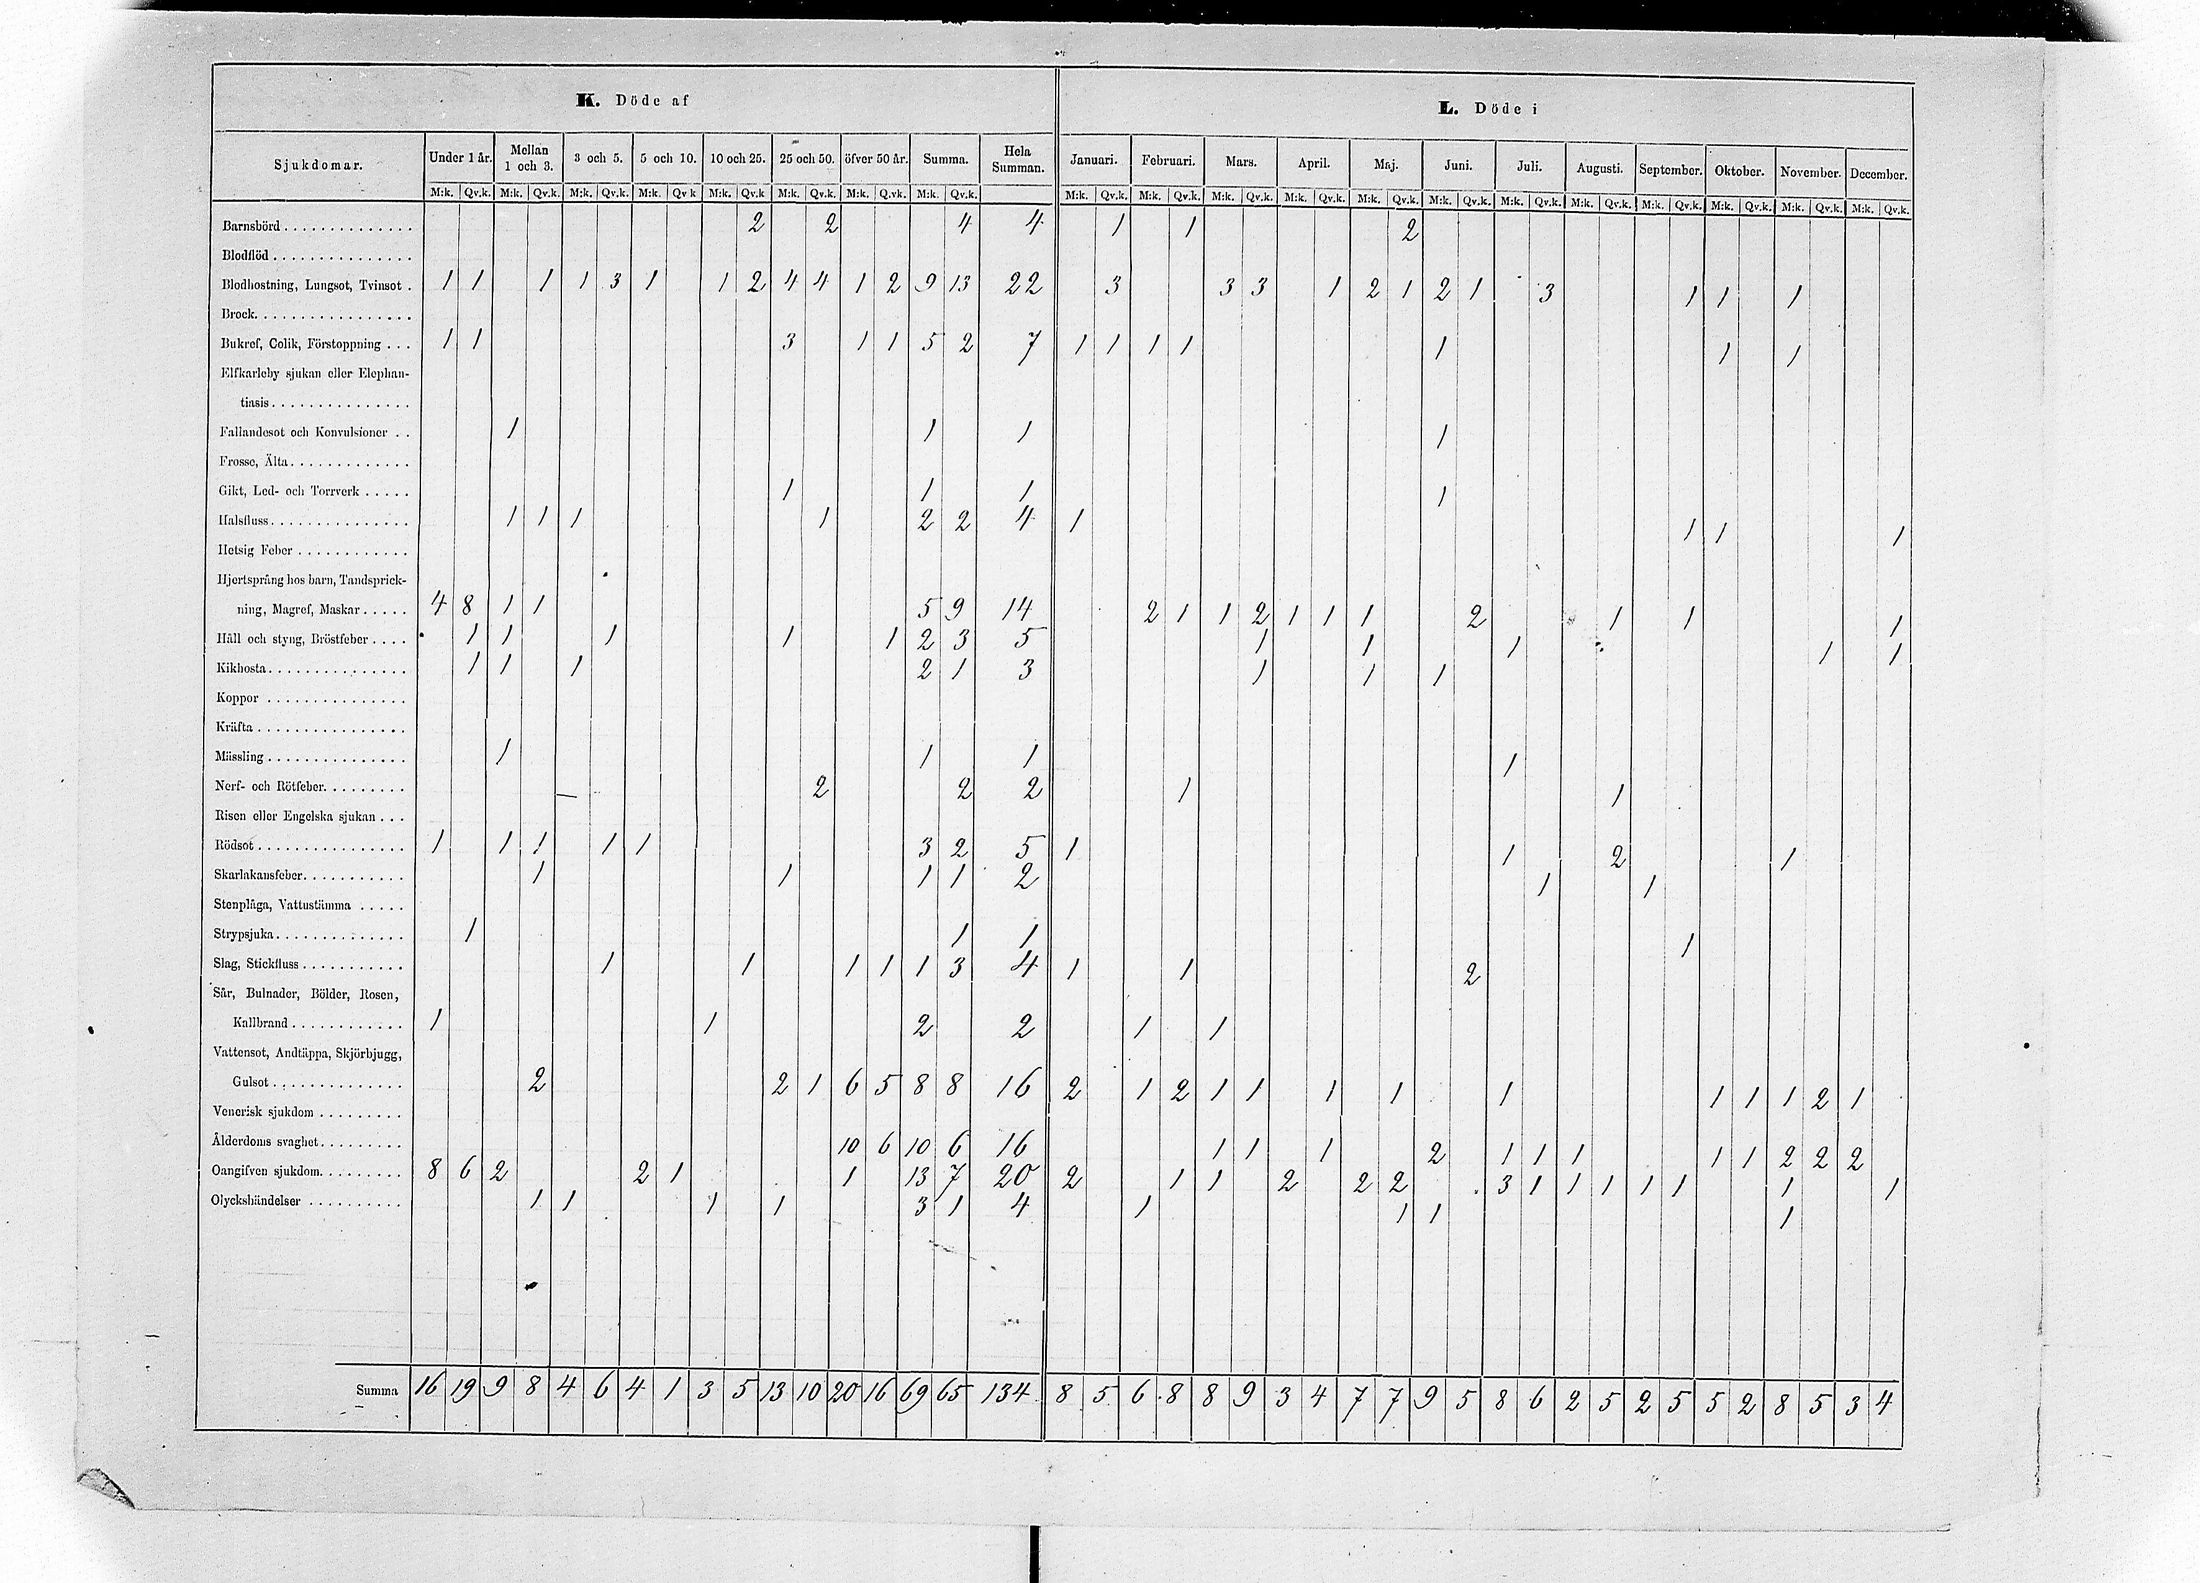 K. Döde af L. Döde i
Sjukdomar. Under 1 år. Mellan 1 och 3. 3 och 5. 5 och 10. 10 och 25. 25 och 50. öfver 50 år. Summa. Hela Summan. Januari. Februari. Mars. April. Maj. Juni. Juli. Augusti. September. Oktober. November. December.
M:k. Qv.k. M:k. Qv.k. M:k. Qv.k. M:k. Qv.k M:k. Qv.k M:k. Qv.k. M:k. Q.vk. M:k. Qv.k. M:k. Qv.k. M:k. Qv.k. M:k. Qv.k. M:k. Qv.k. M:k. Qv.k. M:k. Qv.k. M:k. Qv.k. M:k. Qv.k. M:k. Qv.k. M:k. Qv.k. M:k. Qv.k. M:k. Qv.k.
Barnsbörd 2 2 4 4 1 1 2
Blodflöd
Blodhostning, Lungsot, Tvinsot 1 1 1 1 3 1 1 2 4 4 1 2 9 13 22 3 3 3 1 2 1 2 1 3 1 1 1
Brock
Bukref, Colik, Förstoppning 1 1 3 1 1 5 2 7 1 1 1 1 1 1 1
Elfkarleby sjukan eller Elephan-
tiasis
Fallandesot och Konvulsioner 1 1 1 1
Frosse, Älta
Gikt, Led- och Torrverk 1 1 1 1
Halsfluss 1 1 1 1 2 2 4 1 1 1 1
Hetsig Feber
Hjertsprång hos barn, Tandsprick-
ning, Magref, Maskar 4 8 1 1 5 9 14 2 1 1 2 1 1 1 2 1 1 1
Håll och styng, Bröstfeber 1 1 1 1 1 2 3 5 1 1 1 1 1
Kikhosta 1 1 1 2 1 3 1 1 1
Koppor
Kräfta
Mässling 1 1 1 1
Nerf- och Rötfeber 2 2 2 1 1
Risen eller Engelska sjukan
Rödsot 1 1 1 1 1 3 2 5 1 1 2 1
Skarlakansfeber 1 1 1 1 2 1 1
Stenplåga, Vattustämma
Strypsjuka 1 1 1 1
Slag, Stickfluss 1 1 1 1 1 3 4 1 1 2
Sår, Bulnader, Bölder, Rosen,
Kallbrand 1 1 2 2 1 1
Vattensot, Andtäppa, Skjörbjugg,
Gulsot 2 2 1 6 5 8 8 16 2 1 2 1 1 1 1 1 1 1 1 2 1
Venerisk sjukdom
Ålderdoms svaghet 10 6 10 6 16 1 1 1 2 1 1 1 1 1 2 2 2
Oangifven sjukdom 8 6 2 2 1 1 13 7 20 2 1 1 2 2 2 3 1 1 1 1 1 1 1
Olyckshändelser 1 1 1 1 3 1 4 1 1 1 1
Summa 16 19 9 8 4 6 4 1 3 5 13 10 20 16 69 65 134 8 5 6 8 8 9 3 4 7 7 9 5 8 6 2 5 2 5 5 2 8 5 3 4